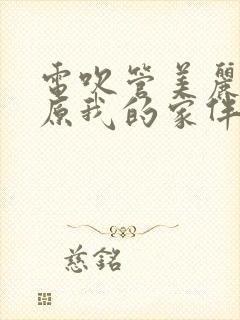 電吹管美麗
原我的家伴
慈銘